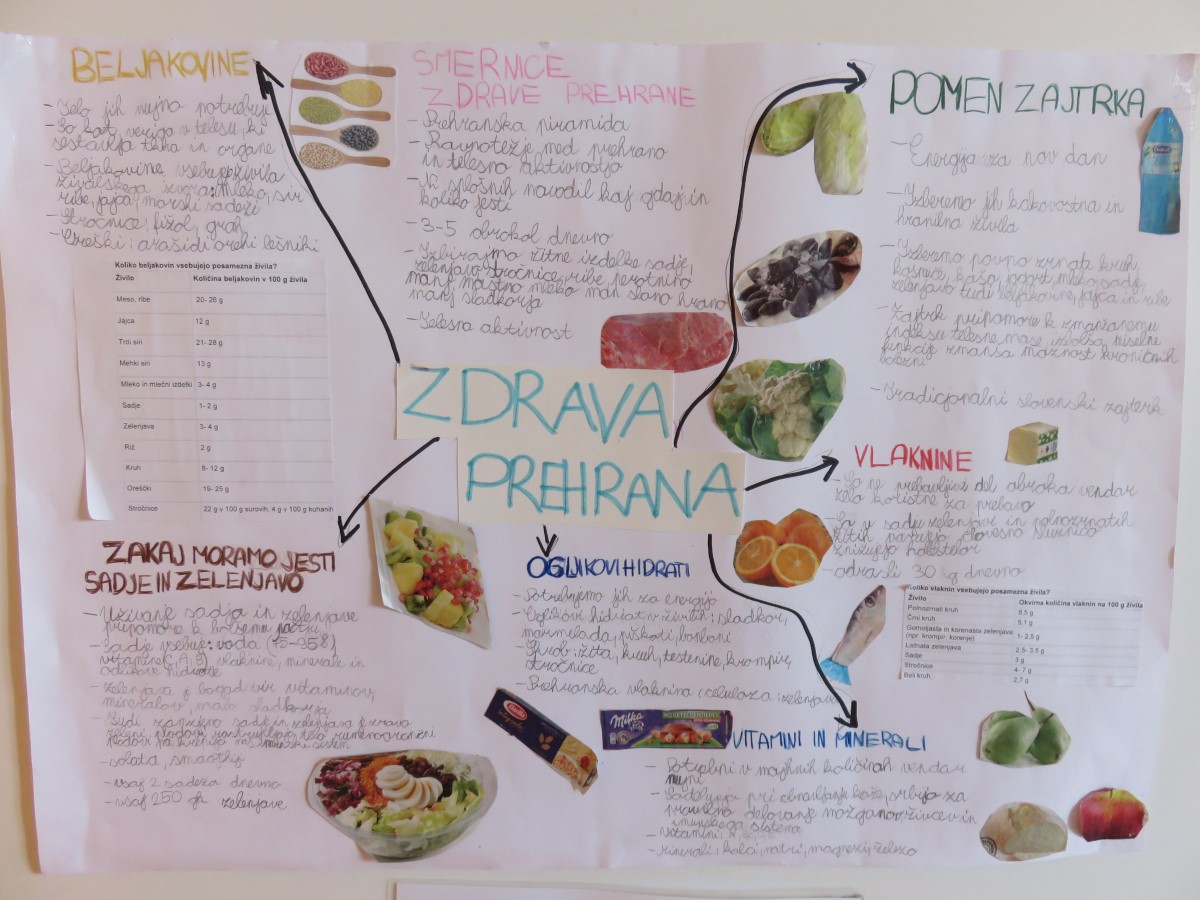 BELJAKOVINE
- Telo jih nujno potrebuje
- So kot veriga v telesu, ki
sestavlja tkiva in organe
- Beljakovine vsebujejo živila
živalskega izvora: mleko, sir
ribe, jajca, morski sadeži
- Stročnice: fižol, grah
- Oreški: arašidi orehi lešniki
Koliko beljakovin vsebujejo posamezna živila?
Živilo Količina beljakovin v 100 g živila
Meso, ribe 20- 26 g
Jajca 12 g
Trdi siri 21- 28 g
Mehki siri 13 g
Mleko in mlečni izdelki 3- 4 g
Sadje 1- 2 g
Zelenjava 3- 4 g
Riž 2 g
Kruh 8- 12 g
Oreščki 19- 25 g
Stročnice 22 g v 100 g surovih, 4 g v 100 g kuhanih
SMERNICE
ZDRAVE PREHRANE
- Prehranska piramida
- Ravnotežje med prehrano
in telesno aktivnostjo
- splošnih navodil kaj gdaj in
koliko jesti
- 3-5 obrokol dnevno
- Izbirajmo žitne izdelke sadje,
zelenjavo stročnice, ribe, perotnino
manj mastno mleko man slano hrano
manj sladkorja
- Telesna aktivnost
POMEN ZAJTRKA
- Energija za nov dan
- Izberemo jih kakovostna in
hranilna živila
- Izberemo polno zrnata kruh,
kosmiče, kaša, jogurt, mleko, sadje,
zelenjavo tudi beljakovine, jajca in ribe
- Zajtrk pripomore k zmanšanemu
indeksu telesne mase izbolša miselne
funkcije zmansa možnost kroničnih
bolezni
- Tradicjonalni slovenski zajterk
ZDRAVA
PREHRANA
VLAKNINE
- So ne prebavljivi del obroka vendar
zelo koristne za prebavo
- So v sadju zelenjavi in polnozrnatih
žitih
znižujejo
- odrasli 30 g dnevno
Koliko vlaknin vsebujejo posamezna živila?
Živilo Okvirna količina vlaknin na 100 g živila
Polnozrnati kruh 8,5 g
Črni kruh 5,1 g
Gomoljasta in korenasta zelenjava
(npr. krompir, korenje) 1- 2,5 g
Listnata zelenjava 2,5- 3,5 g
Sadje 3 g
Stročnice 4- 7 g
Beli kruh 2,7 g
ZAKAJ MORAMO JESTI
SADJE IN ZELENJAVO
- Uživanje sadja in zelenjave
pripomore k
- Sadje vsebuje: voda (75-95%)
vlaknine, minerale in
- Zelenjava je bogad vir vitaminov,
mineralov, malo sladkorja
- sadje in zelenjava
- solata, smoothij
- vsaj 2 sadeža dnevno
- vsaj 250 gr zelenjave
OGLJIKOVI HIDRATI
- Potrebujemo jih za energijo
- Ogljikovi hidrat v živilih: sladkor,
marmelada, piškoti, bonboni
- Škrob: žita, kruh, testenine, krompir,
stročnice
- Prehranska vlaknina: celuloza: zelenjava
Barilla
Milka
VITAMINI IN MINERALI
- Potrebni v majhnih količinah vendar
nujni
- Sodelujejo pri obnavljanju kože, srbijo za
pravilno delovanje možganov, živcev in
imunskega sistema
- Vitamini:
- Minerali: kalci, natri, magnezij, železo